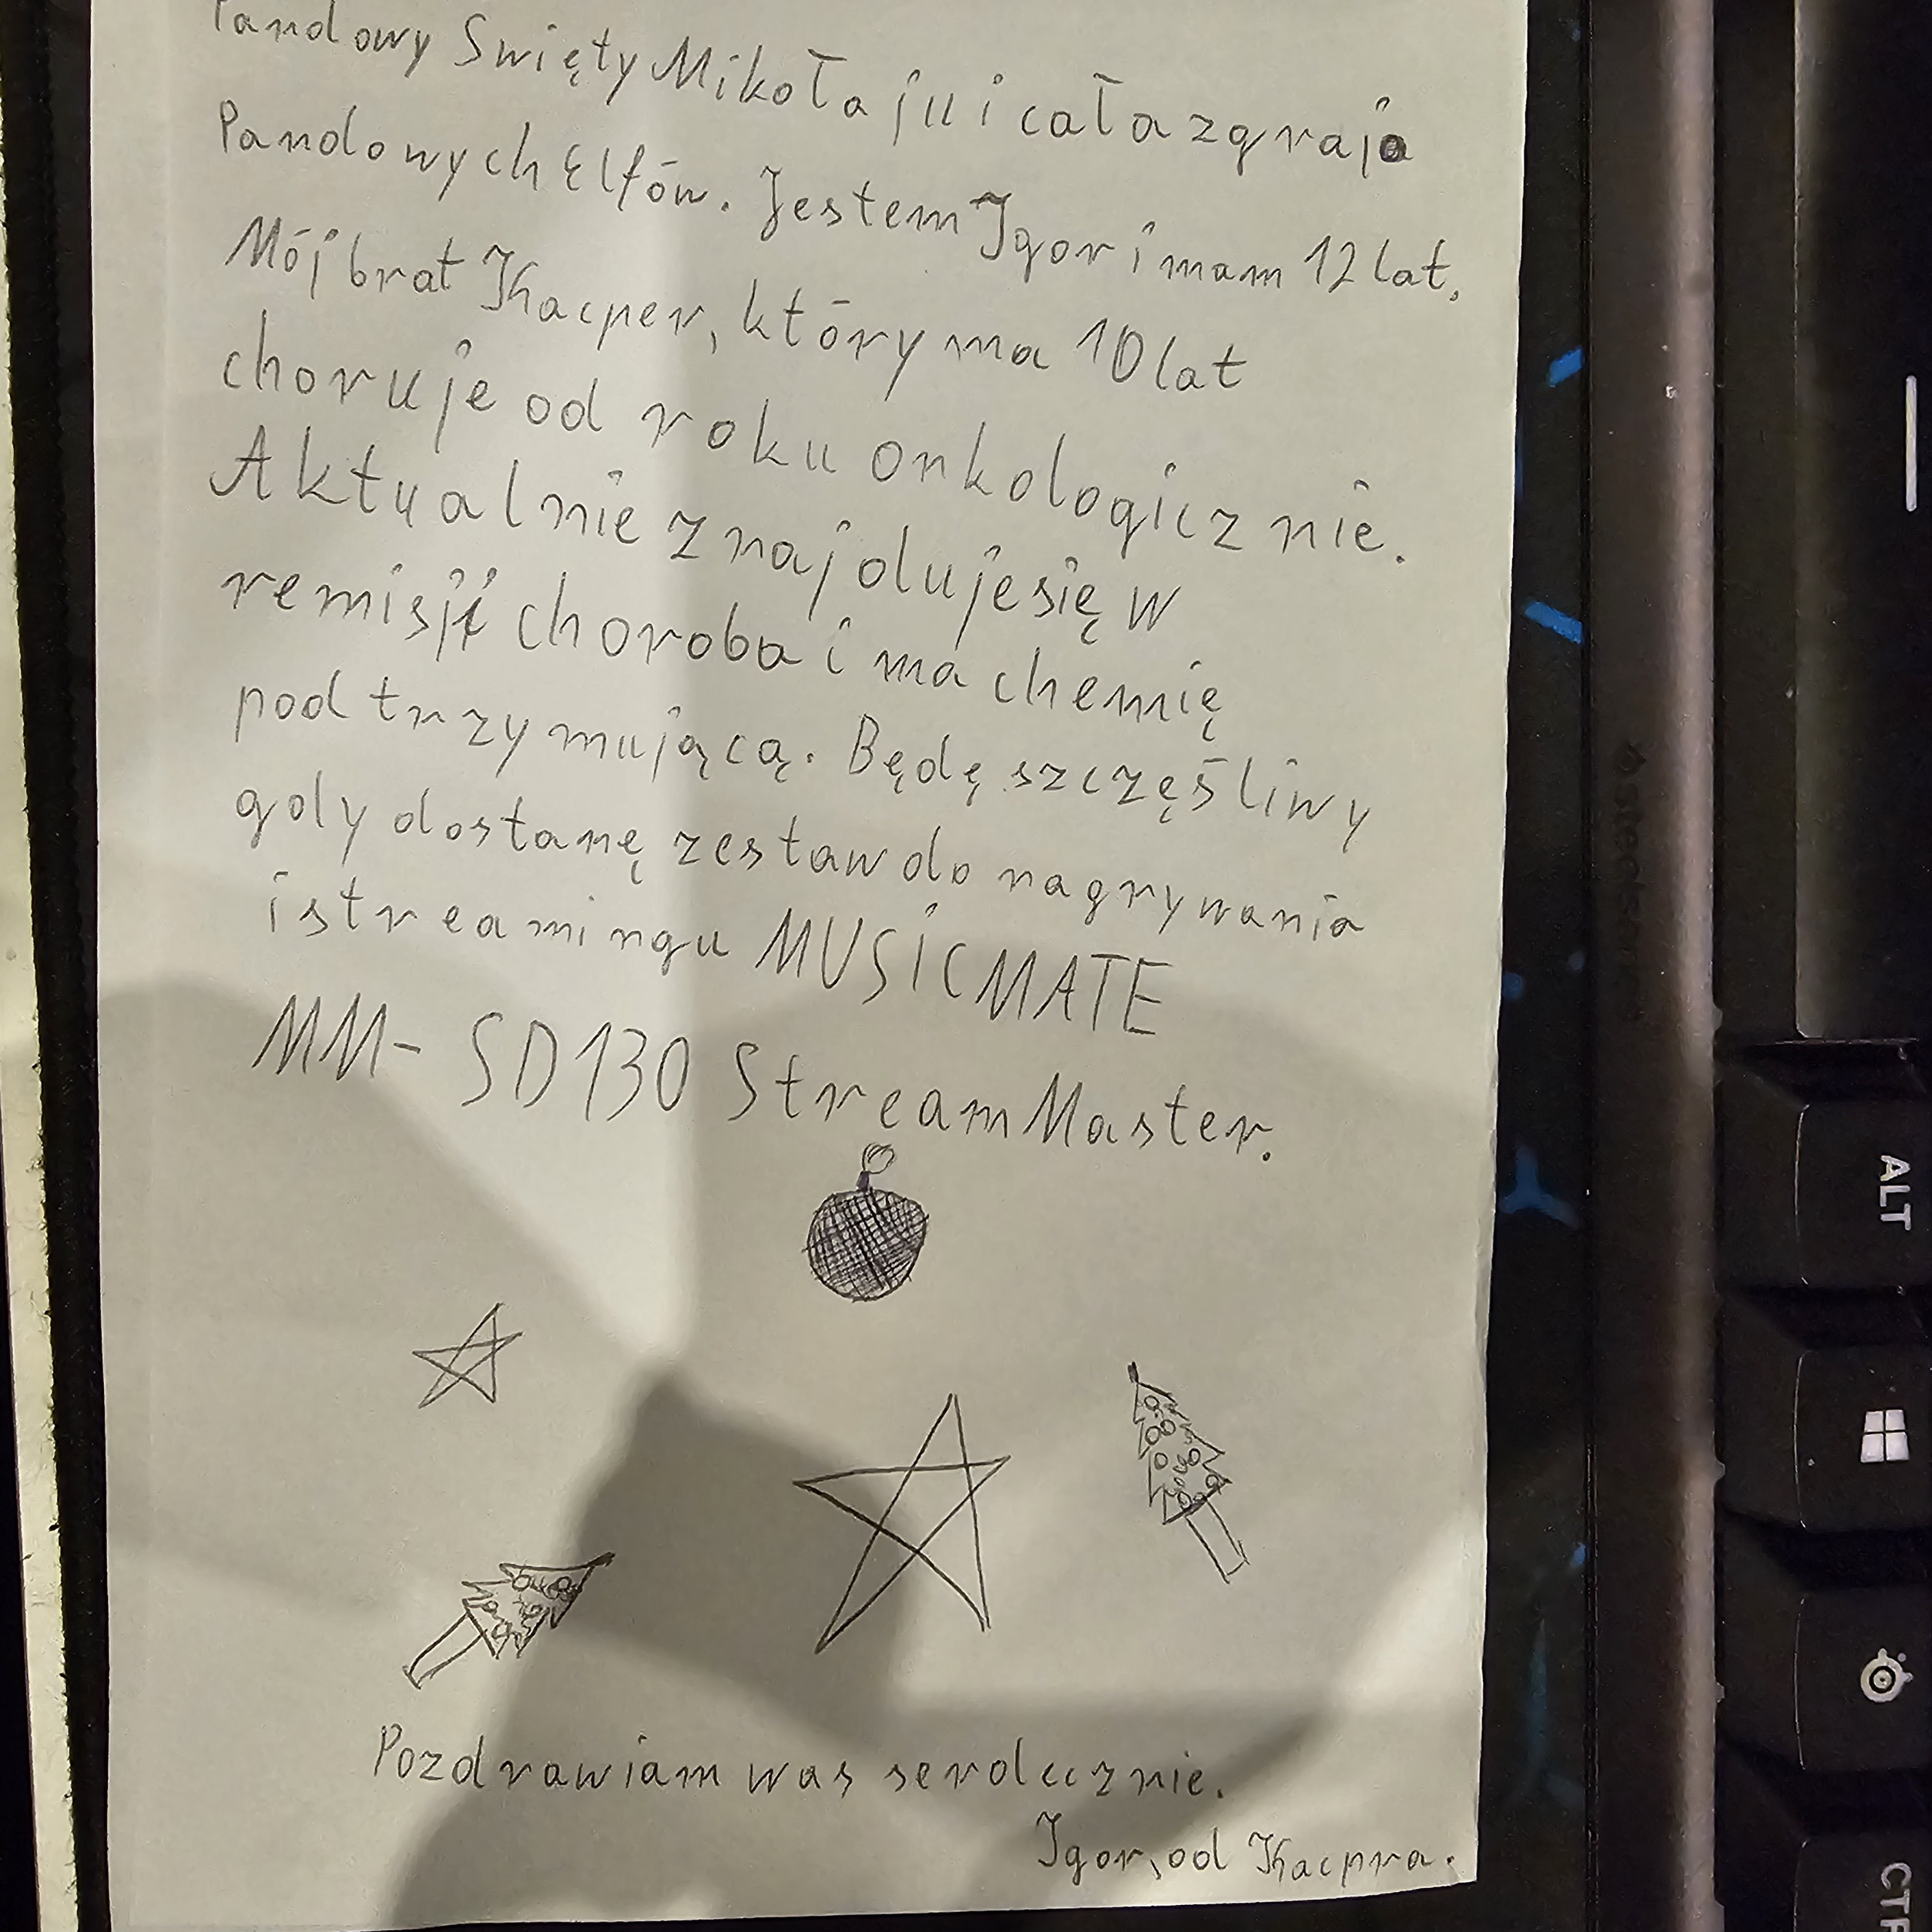 Pandowy Święty Mikołaju i cała zgraja
Pandowych Elfów. Jestem Igor i mam 12 lat.
Mój brat Kacper, który ma 10 lat
choruje od roku onkologicznie.
Aktualnie znajduje się w
remisji choroba i ma chemię
podtrzymującą. Będę szczęśliwy
gdy dostanę zestaw do nagrywania
i streamingu MUSICMATE
MM-SD130 StreamMaster.
Pozdrawiam was serdecznie.
Igor, od Kacpra.
steelseries
ALT
CTR